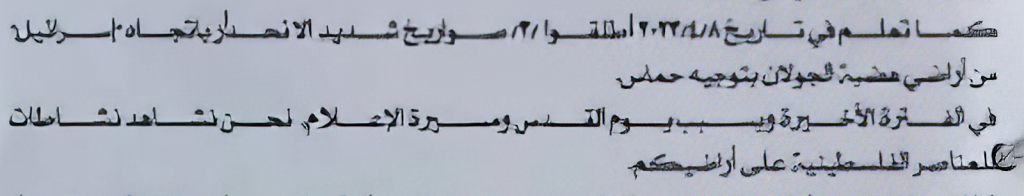 كما تعلم في تاريخ ٢٠٢٣/٤/٨ أطلقوا /٣/ صواريخ شديد الانحدار باتجاه "إسرائيل"
من أراضي هضبة الجولان بتوجيه حماس.
في الفترة الأخيرة وبسبب يوم القدس ومسيرة الإعلام، نحن نشاهد نشاطات
للعناصر الفلسطينية على أراضيكم